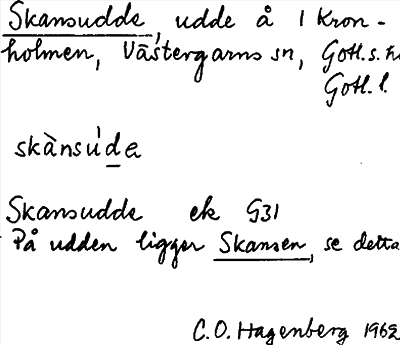 Skansudde, udde å 1 Kron-
holmen, Västergarns sn, Gotl. s. h
Gotl. l.
skànsu'de
Skansudde ek G31
På udden ligger Skansen, se detta
C. O. Hagenberg 1962